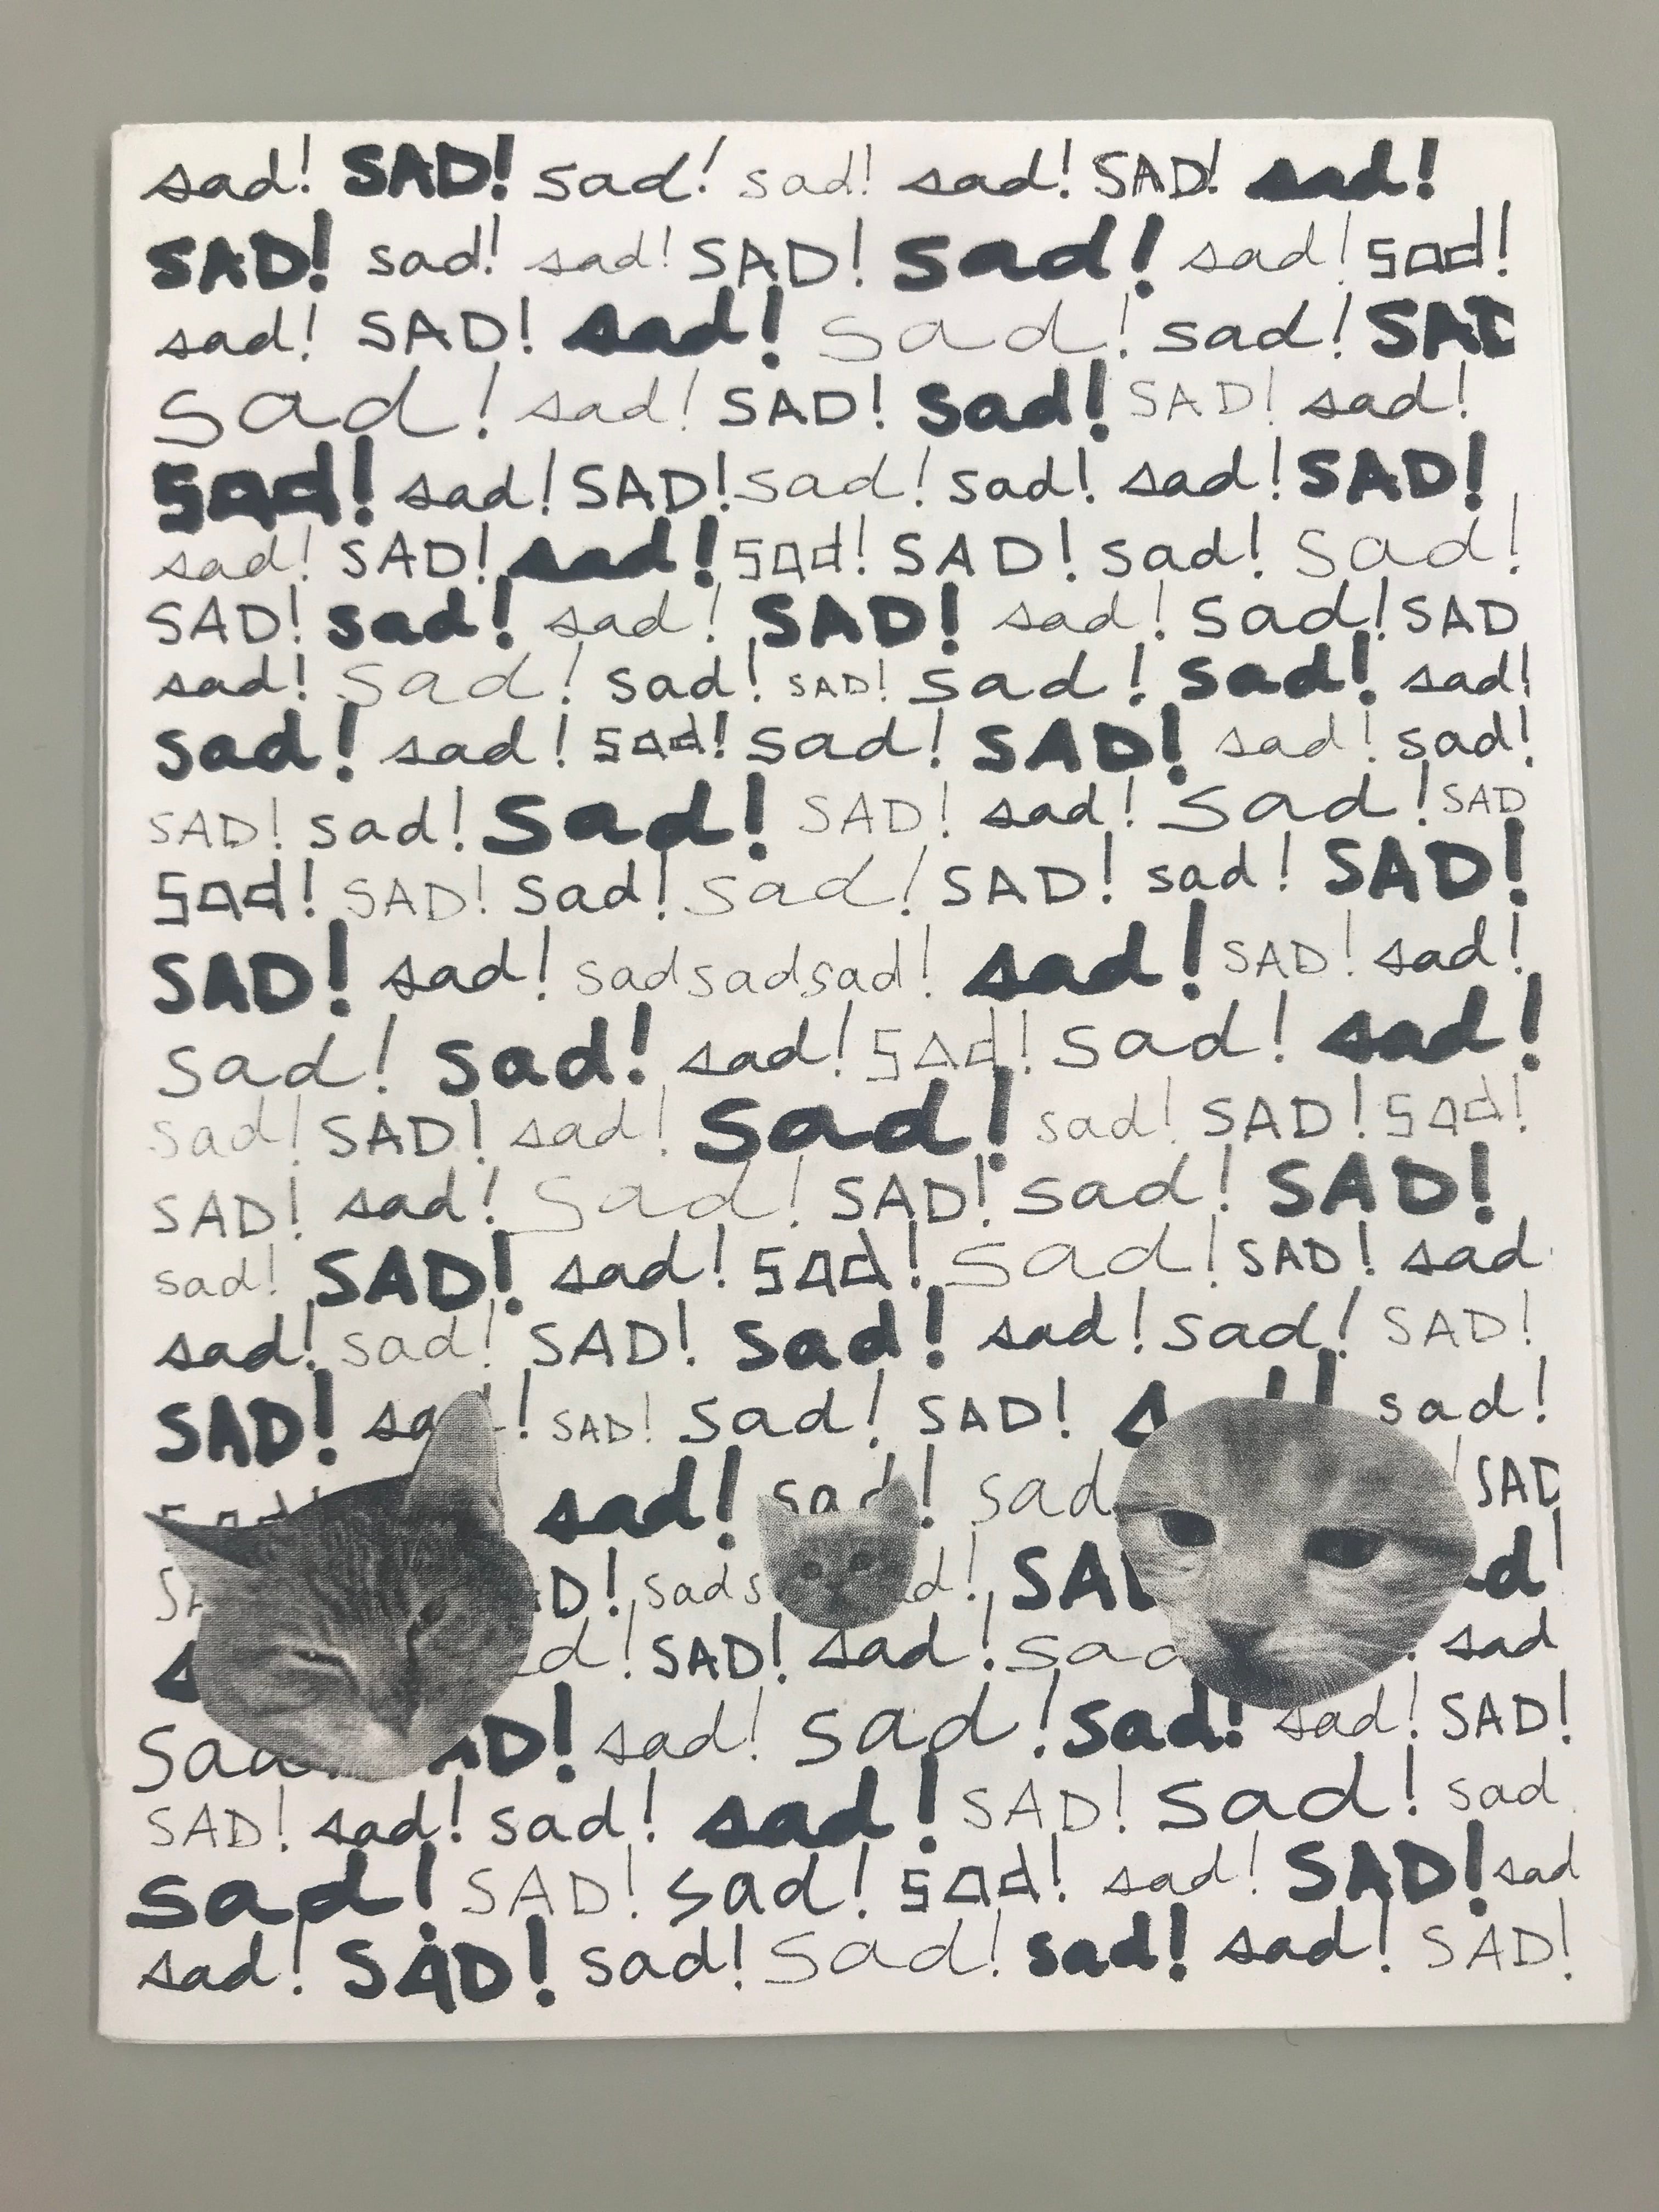 sad! SAD! sad! sad! sad! SAD! sad!
SAD! sad! sad! SAD! sad! sad! sad!
sad! SAD! sad! sad! sad! SAD
sad! sad! SAD! sad! SAD! sad!
sad! sad! SAD! sad! sad! sad! SAD!
sad! SAD! sad! sad! SAD! sad! sad!
SAD! sad! sad! SAD! sad! sad! SAD
sad! sad! sad! SAD! sad! sad! sad!
sad! sad! sad! sad! SAD! sad! sad!
SAD! sad! sad! SAD! sad! sad! SAD
sad! SAD! sad! sad! SAD! sad! SAD!
SAD! sad! sadsadsad! sad! SAD! sad!
sad! sad! sad! sad! sad! sad!
sad! SAD! sad! sad! sad! SAD! sad!
SAD! sad! sad! SAD! sad! SAD!
sad! SAD! sad! sad! sad! SAD! sad
sad! sad! SAD! sad! sad! sad! SAD!
SAD! sa ! SAD! sad! SAD! sad!
sad! sad! sad SAD
SA D! sads d! SA d!
d! SAD! sad! sad sad
sad AD! sad! sad! sad! sad! SAD!
SAD! sad! sad! sad! SAD! sad! sad
sad! SAD! sad! sad! sad! SAD! sad
sad! SAD! sad! sad! sad! sad! SAD!